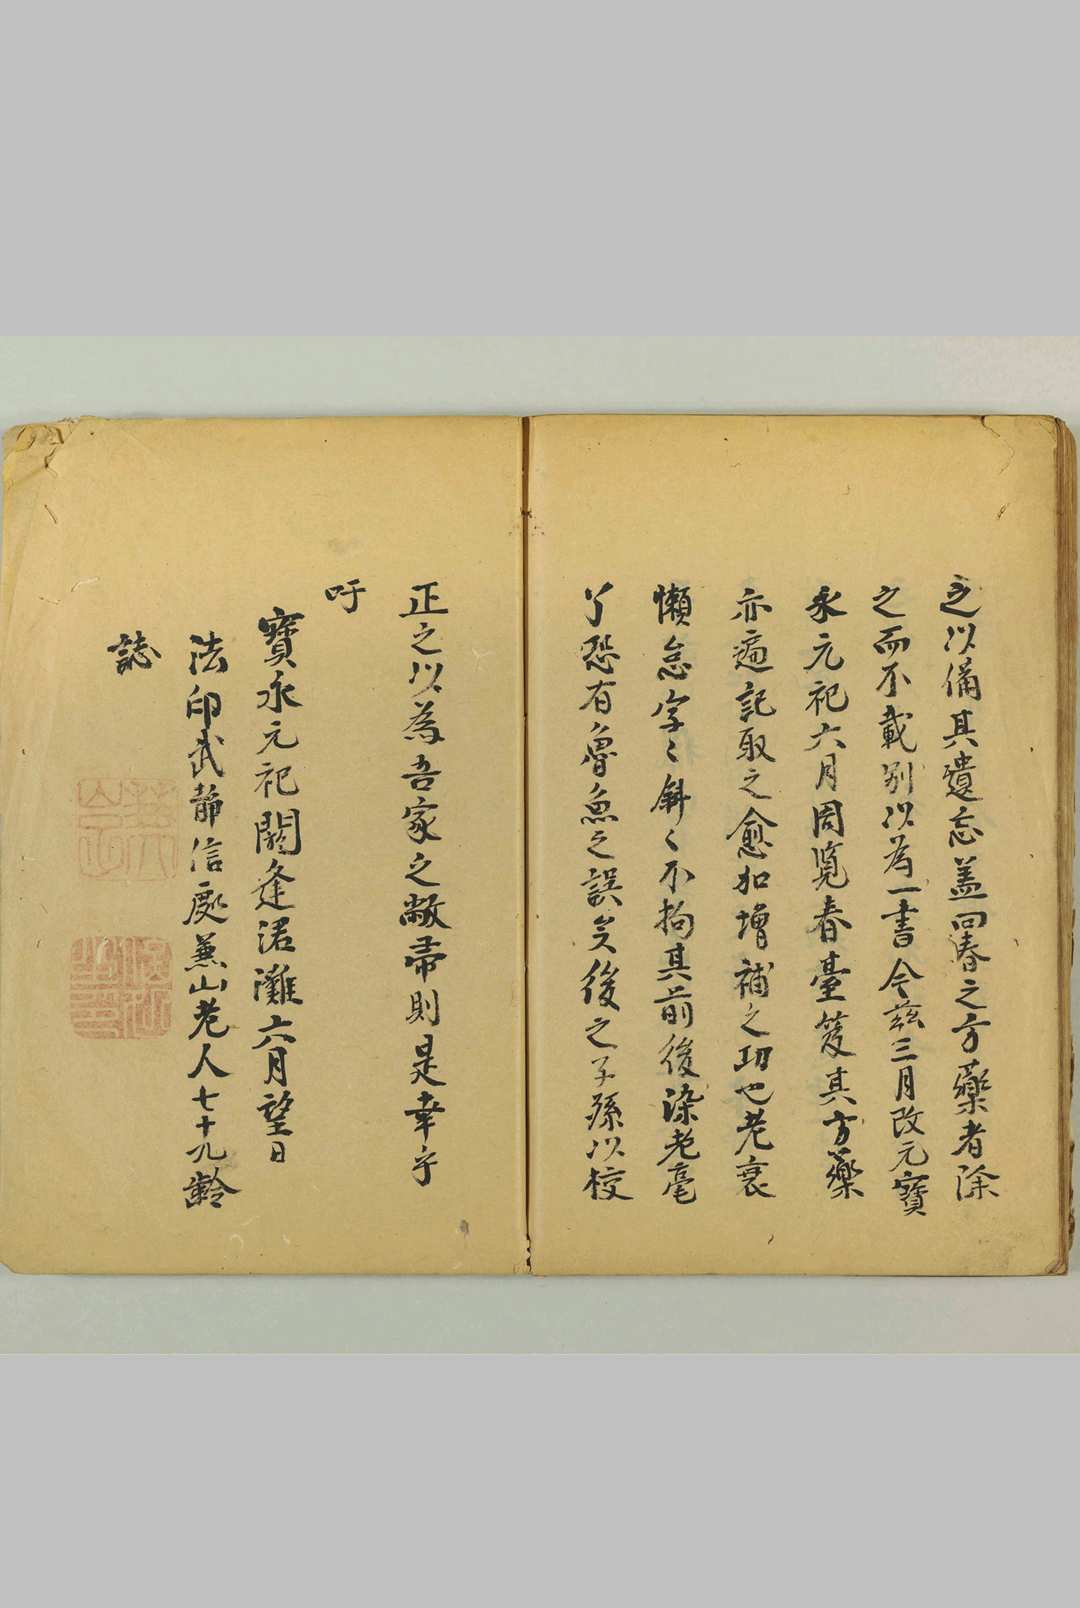 之以備其遺忘蓋回春之方藥者除
之而不載別以為一書今茲三月改元寶
永元祀六月周覧春臺笈其方藥
亦遍記取之愈加増補之功也老衰
懶怠字〻斜〻不拘其前後染老毫
了恐有魯魚之誤矣後之子孫以校
正之以為吾家之敝帚則是幸乎
吁
寶永元祀閼逢涒灘六月望日
法印武静信處兼山老人七十九齡
誌